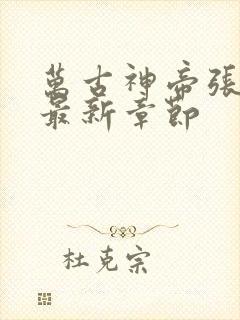 萬古神帝張
最新章節
杜克宗